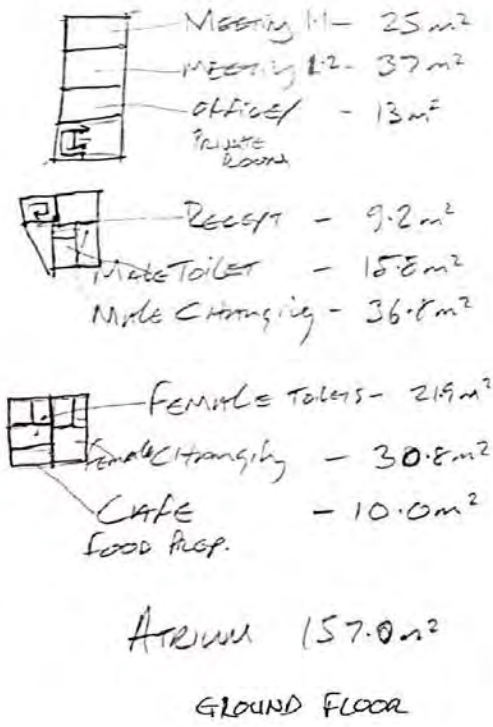 MEETING 1.1 - 25m²
MEETING 1.2 - 37m²
OFFICE/ - 13m²
PRIVATE
ROOM
RECEPT - 9.2m²
MALE TOILET - 15.8m²
MALE CHANGING - 36.8m²
FEMALE TOILETS - 21.9m²
Female CHANGING - 30.8m²
CAFE - 10.0m²
FOOD PREP.
ATRIUM 157.0m²
GROUND FLOOR